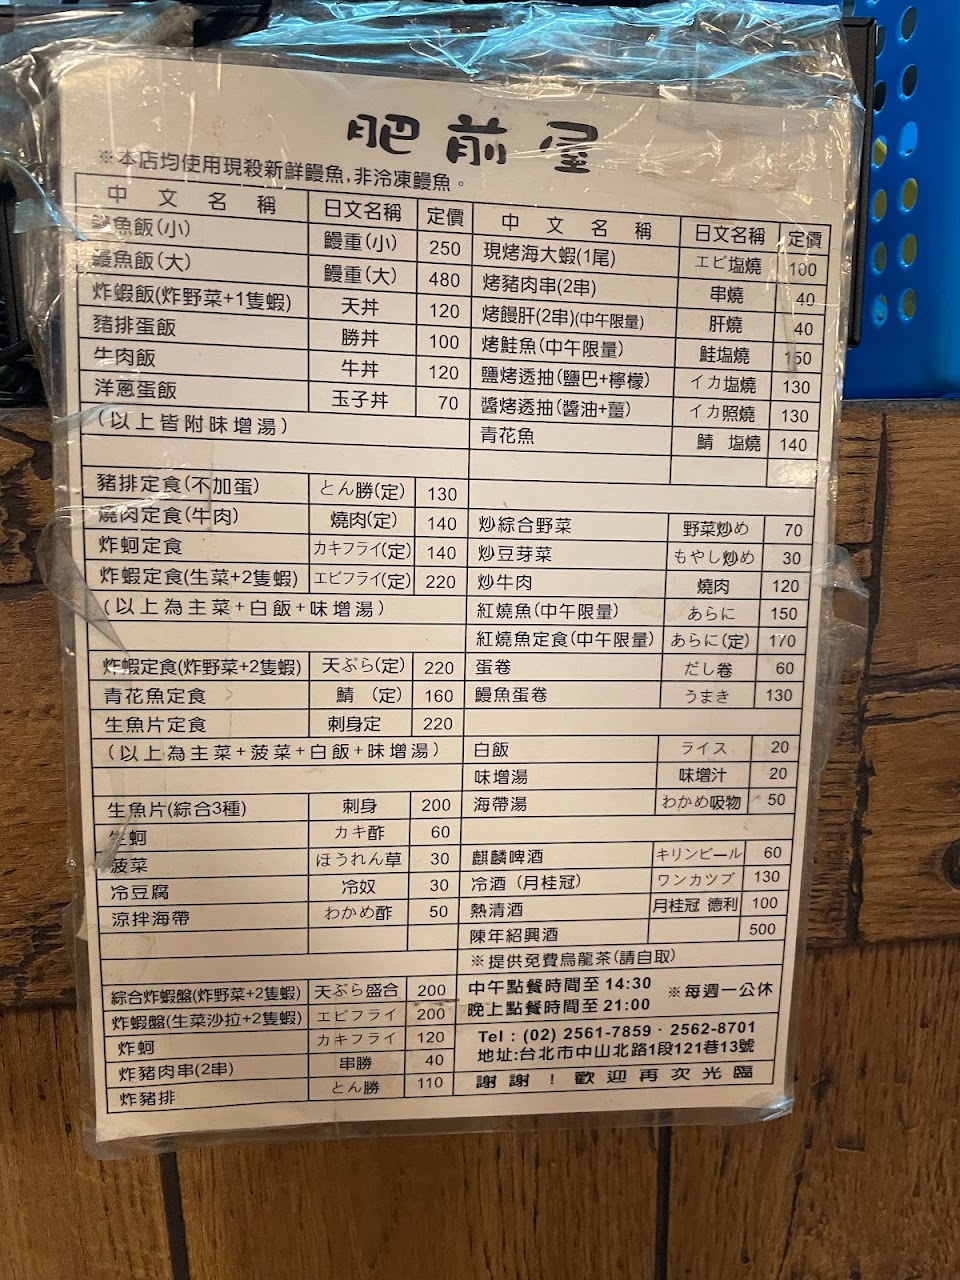 肥前屋
※本店均使用現殺新鮮鰻魚,非冷凍鰻魚。
中文名稱 日文名稱 定價
鰻魚飯(小) 鰻重(小) 250
鰻魚飯(大) 鰻重(大) 480
炸蝦飯(炸野菜+1隻蝦) 天丼 120
豬排蛋飯 勝丼 100
牛肉飯 牛丼 120
洋蔥蛋飯 玉子丼 70
(以上皆附味增湯)
豬排定食(不加蛋) とん勝(定) 130
燒肉定食(牛肉) 燒肉(定) 140
炸蚵定食 カキフライ(定) 140
炸蝦定食(生菜+2隻蝦) エビフライ(定) 220
(以上為主菜+白飯+味增湯)
炸蝦定食(炸野菜+2隻蝦) 天ぷら(定) 220
青花魚定食 鯖 (定) 160
生魚片定食 刺身定 220
(以上為主菜+菠菜+白飯+味增湯)
生魚片(綜合3種) 刺身 200
生蚵 カキ酢 60
菠菜 ほうれん草 30
冷豆腐 冷奴 30
涼拌海帶 わかめ酢 50
綜合炸蝦盤(炸野菜+2隻蝦) 天ぷら盛合 200
炸蝦盤(生菜沙拉+2隻蝦) エビフライ 200
炸蚵 カキフライ 120
炸豬肉串(2串) 串勝 40
炸豬排 とん勝 110
中文名稱 日文名稱 定價
現烤海大蝦(1尾) エビ塩燒 100
烤豬肉串(2串) 串燒 40
烤饅肝(2串)(中午限量) 肝燒 40
烤鮭魚(中午限量) 鮭塩燒 150
鹽烤透抽(鹽巴+檸檬) イカ塩燒 130
醬烤透抽(醬油+薑) イカ照燒 130
青花魚 鯖 塩燒 140
炒綜合野菜 野菜炒め 70
炒豆芽菜 もやし炒め 30
炒牛肉 燒肉 120
紅燒魚(中午限量) あらに 150
紅燒魚定食(中午限量) あらに(定) 170
蛋卷 だし卷 60
鰻魚蛋卷 うまき 130
白飯 ライス 20
味增湯 味增汁 20
海帶湯 わかめ吸物 50
麒麟啤酒 キリンビール 60
冷酒 (月桂冠) ワンカツブ 130
熱清酒 月桂冠 德利 100
陳年紹興酒 500
※提供免費烏龍茶(請自取)
中午點餐時間至 14:30
晚上點餐時間至 21:00
※每週一公休
Tel : (02) 2561-7859 · 2562-8701
地址:台北市中山北路1段121巷13號
謝謝!歡迎再次光臨